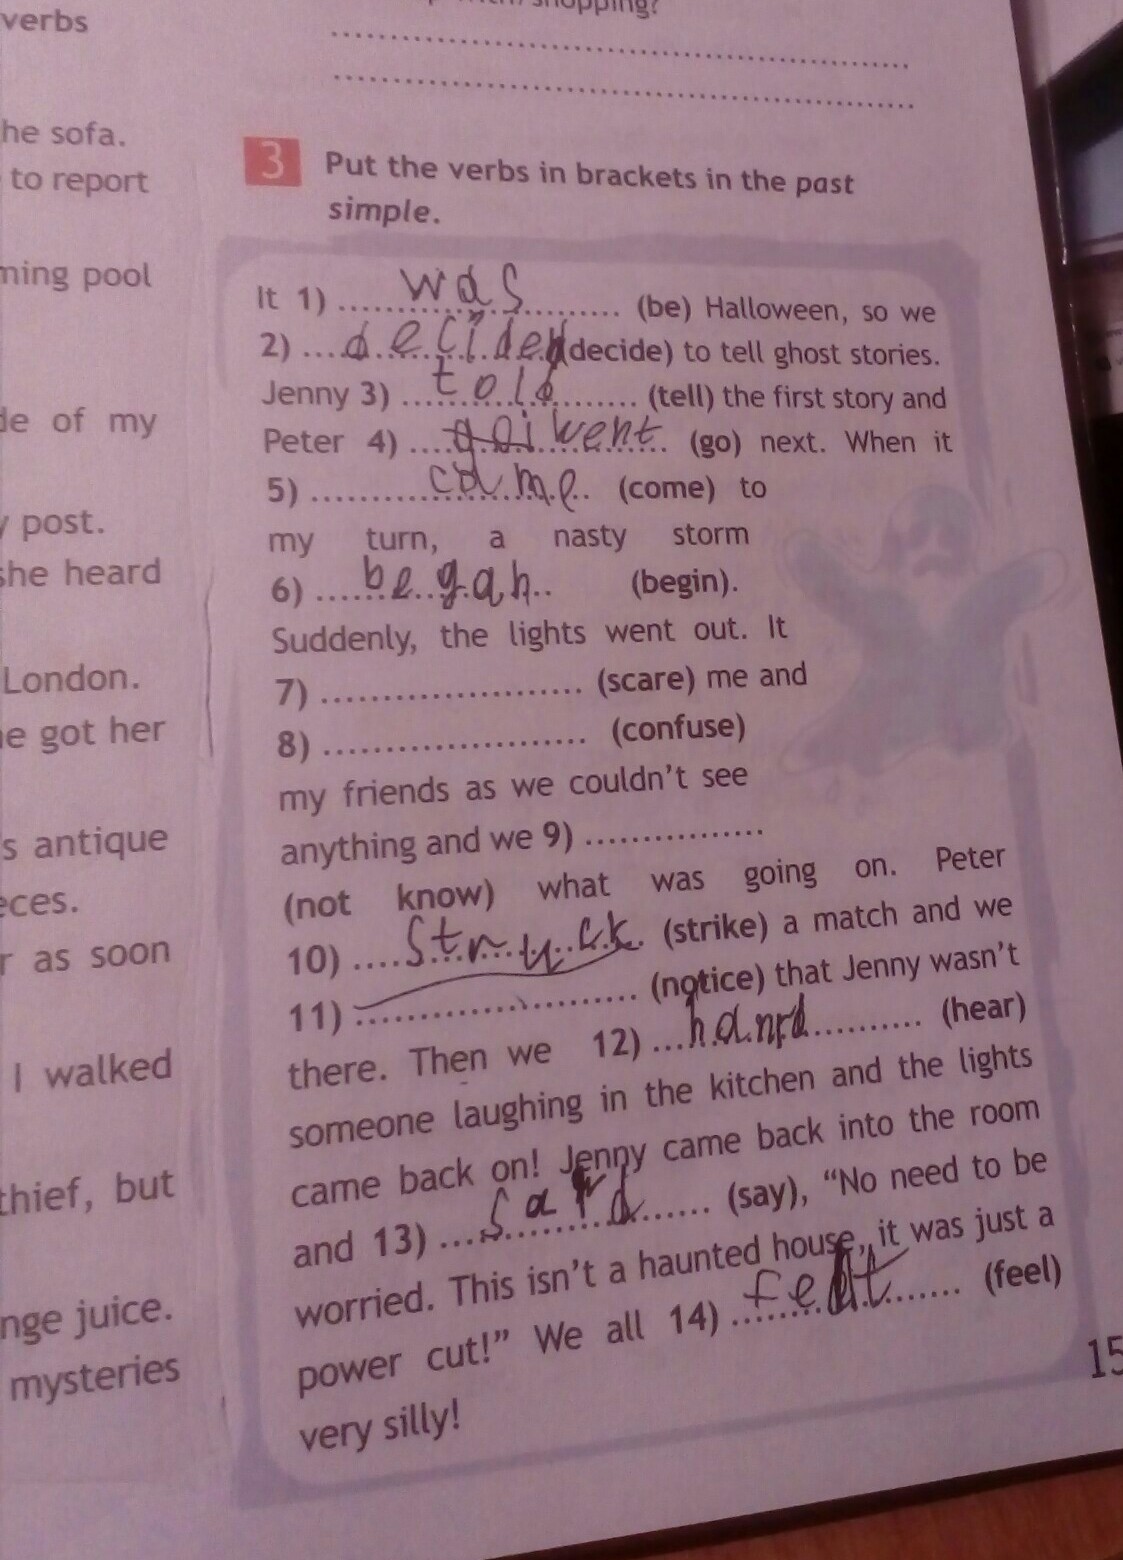 verbs
shopping?
he sofa.
to report
ming pool
de of my
post.
she heard
London.
he got her
s antique
eces.
r as soon
I walked
thief, but
nge juice.
mysteries
3 Put the verbs in brackets in the past
simple.
It 1) ......was......... (be) Halloween, so we
2) ....decided (decide) to tell ghost stories.
Jenny 3) ...told......... (tell) the first story and
Peter 4) ....goi went. (go) next. When it
5) ............came.. (come) to
my turn, a nasty storm
6) ......began.. (begin).
Suddenly, the lights went out. It
7) ........................ (scare) me and
8) ........................ (confuse)
my friends as we couldn't see
anything and we 9) ................
(not know) what was going on. Peter
10) ....struck. (strike) a match and we
11) ......................... (notice) that Jenny wasn't
there. Then we 12) ............. (hear)
someone laughing in the kitchen and the lights
came back on! Jenny came back into the room
and 13) ....said....... (say), “No need to be
worried. This isn't a haunted house, it was just a
power cut!” We all 14) ......felt....... (feel)
very silly!
15